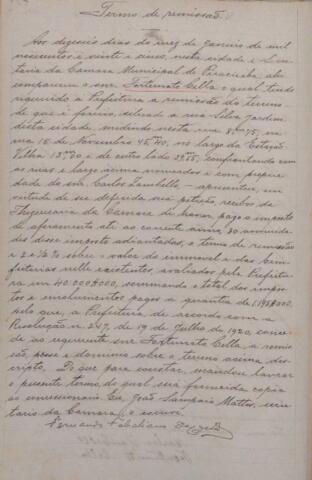 Termo de remissão.
Aos dezeseis dias do mez de Janeiro de mil
novecentos e vinte e cinco, nesta cidade e Secre-
taria da Camara Municipal de Piracicaba, ahi
compareceu o snr. Fortunato Cella o qual tendo
requerido a Prefeitura a remissão do terreno
de que é foreiro, situado a rua Silva Jardim
desta cidade, medindo nesta rua 8,75, na
rua 15 de Novembro 45,40, no largo da Estação
Velha 13,20 e de outro lado 39,55, confrontando com
as ruas e largo acima nomeados e com proprie-
dade do snr. Carlos Zambello — apresentou, em
virtude de ser deferida sua petição, recibos da
Thezouraria da Camara de haver pago o imposto
de aforamento até ao corrente anno, 20 annuida-
des desse imposto adiantadas, o termo de remissão
e 2 ½ % sobre o valor do immovel e das bem-
feitorias nelle existentes, avaliados pela Prefeitu-
ra em 40.000$000, sommando o total dos impos-
tos e emolumentos pagos a quantia de
pelo que, a Prefeitura, de accordo com a
Resolução n. 247, de 19 de Julho de 1920, conce-
de ao requerente snr. Fortunato Cella, a remis-
são, posse e dominio sobre o terreno acima des-
cripto. Do que para constar, mandou lavrar
o presente termo, do qual será fornecida copia
ao concessionario. Eu, João Sampaio Mattos, secre-
tario da Camara, o escrevi.
Fernando Febeliano da Costa